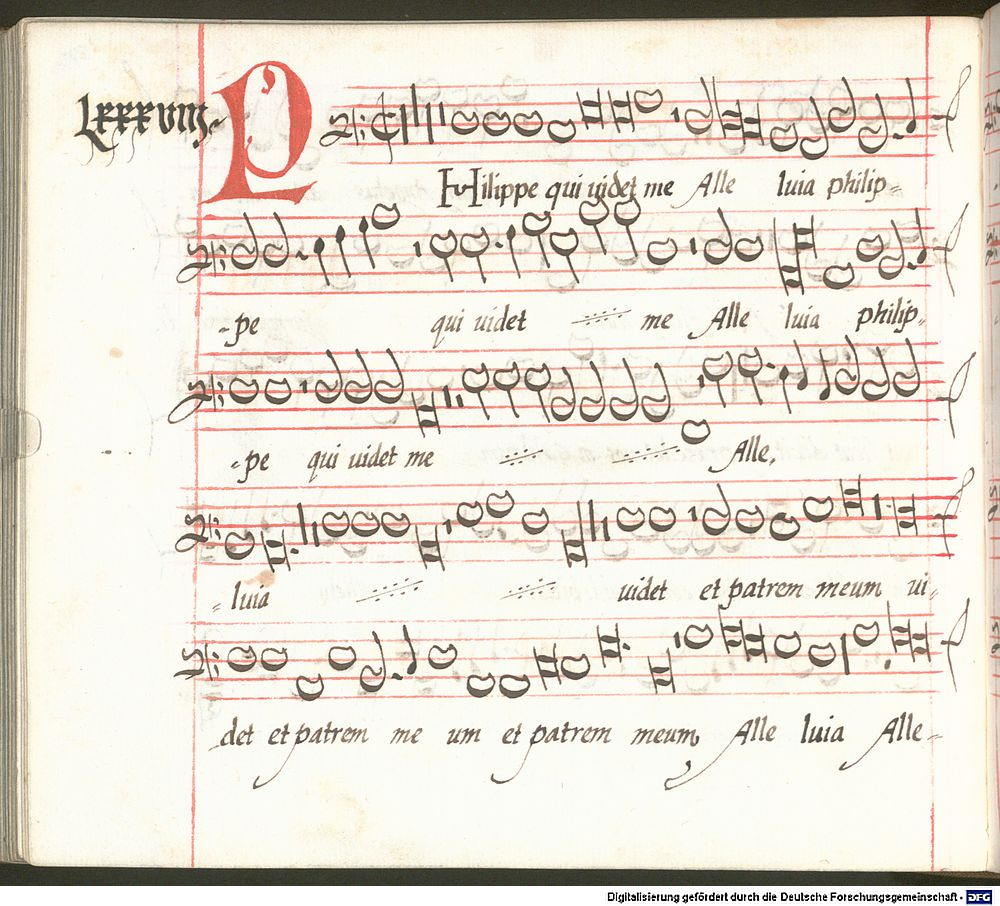 Lxxxviij.
PHilippe qui uidet me Alle luia philip=
-pe qui uidet me Alle luia philip=
-pe qui uidet me Alle,
-luia uidet et patrem meum ui=
det et patrem me um et patrem meum Alle luia Alle=
Digitalisierung gefördert durch die Deutsche Forschungsgemeinschaft - DFG